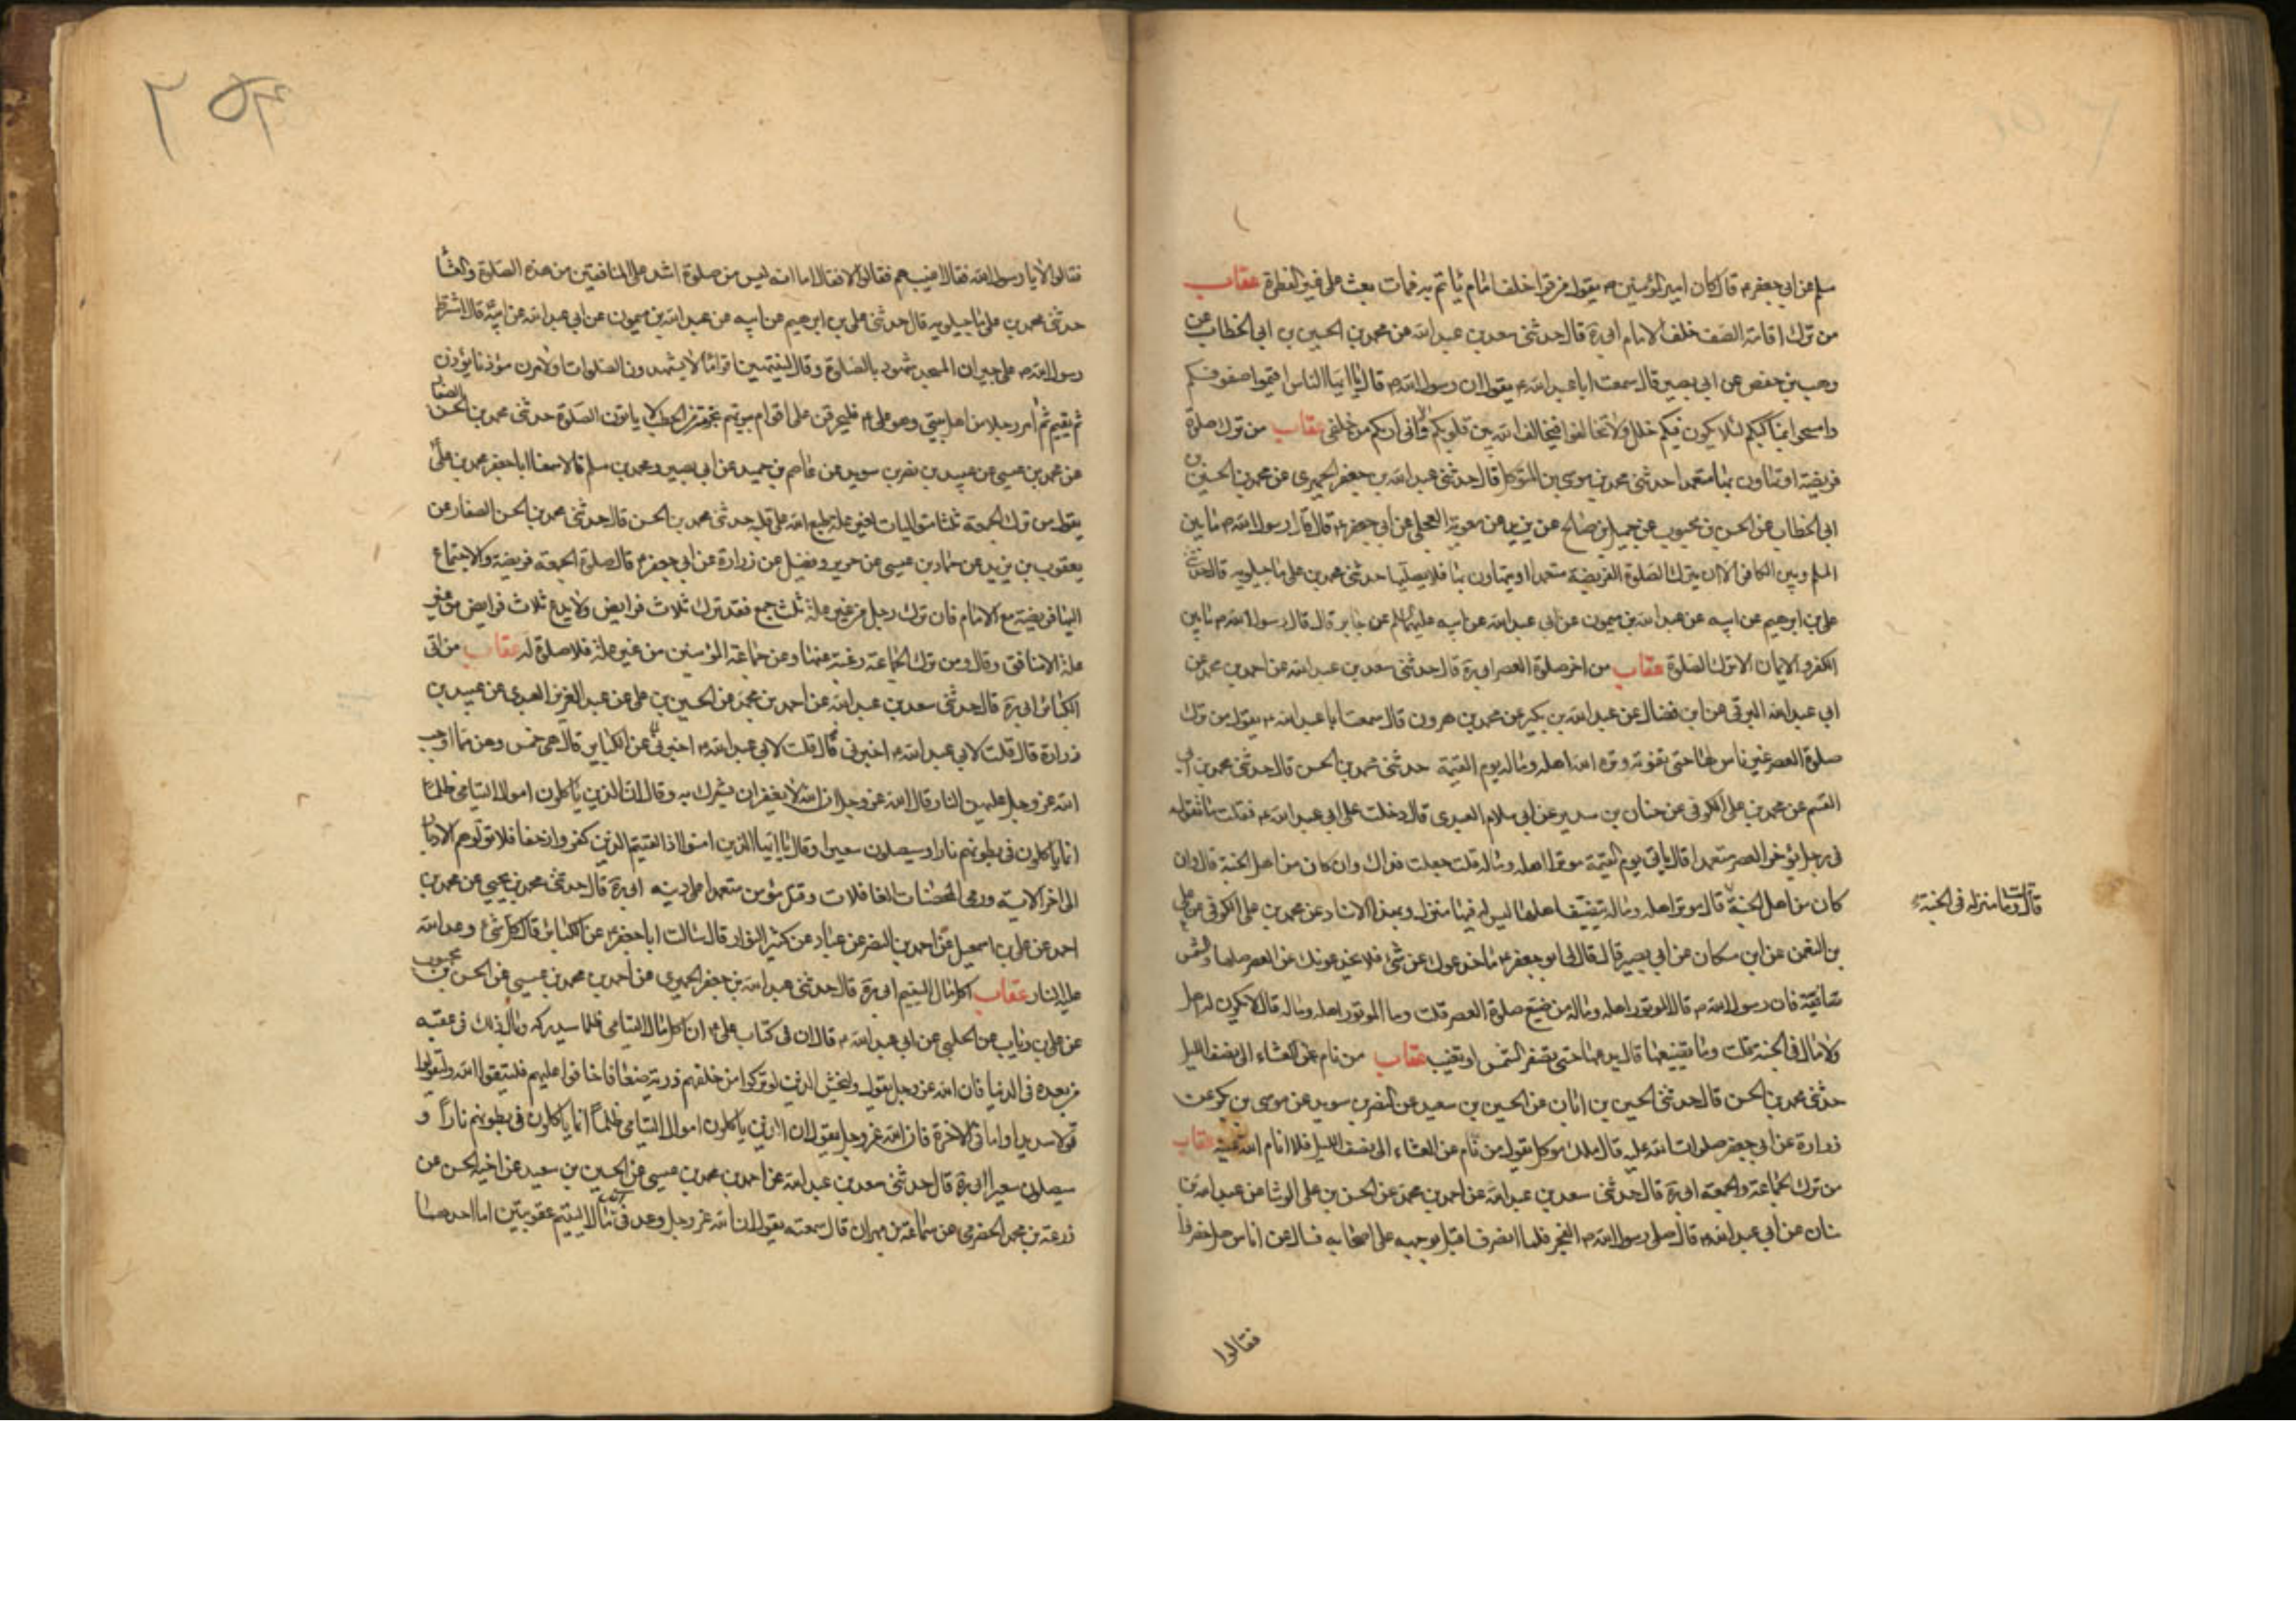 مسلم عن ابي جعفر ع قال كان امير المؤمنين ع يقول من قرا خلف امام ياتم به فمات بعث على غير الفطرة عقاب
من ترك اقامة الصف خلف الامام ابي ره قال حدثنى سعد بن عبد الله عن محمد بن الحسين بن ابى الخطاب عن
وهب بن حفص عن ابى بصير قال سمعت ابا عبد الله ع يقول ان رسول الله ص قال يا ايها الناس اقيموا صفوفكم
وامسحوا بمناكبكم لئلا يكون فيكم خلل ولا تخالفوا فيخالف الله بين قلوبكم الا وانى اراكم من خلفى عقاب من ترك صلوة
فريضة او تهاون بها متعمدا حدثنى محمد بن موسى بن المتوكل قال حدثنى عبد الله بن جعفر الحميرى عن محمد بن الحسين بن
ابى الخطاب عن الحسن بن محبوب عن جميل بن صالح عن بريد بن معوية العجلى عن ابى جعفر ع قال قال رسول الله ص ما بين
المسلم وبين الكافر الا ان يترك الصلوة الفريضة متعمدا او يتهاون بها فلا يصليها حدثنى محمد بن على ماجيلويه قال حدثنى
على بن ابرهيم عن ابيه عن عبد الله بن ميمون عن ابى عبد الله عن ابيه عليهما السلم عن جابر قال قال رسول الله ص ما بين
الكفر والايمان الا ترك الصلوة عقاب من اخر صلوة العصر ابى ره قال حدثنى سعد بن عبد الله عن احمد بن محمد عن
ابى عبد الله البرقى عن ابن فضال عن عبد الله بن بكير عن محمد بن هرون قال سمعت ابا عبد الله ع يقول من ترك
صلوة العصر غير ناس لها حتى تفوته وتره الله اهله وماله يوم القيمة حدثنى محمد بن الحسن قال حدثنى محمد بن ابى
القسم عن محمد بن على الكوفى عن حنان بن سدير عن ابى سلام العبدى قال دخلت على ابى عبد الله ع فقلت ما تقول
فى رجل يؤخر العصر متعمدا قال ياتى يوم القيمة موترا اهله وماله قلت جعلت فداك وان كان من اهل الجنة قال وان
كان من اهل الجنة قال موترا اهله وماله يتضيف اهلها ليس له فيها منزل وبهذا الاسناد عن محمد بن على الكوفى عن على
قال قلت وما منزله فى الجنة
بن النعمن عن ابن مسكان عن ابى بصير قال قال لى ابو جعفر ع ما خدعوك عن شئ فلا يخدعونك عن العصر صلها والشمس
نقية فان رسول الله ص قال الموتور اهله وماله من ضيع صلوة العصر قلت وما الموتور اهله وماله قال لا يكون له اهل
ولا مال فى الجنة قلت وما تضييعها قال يدعها حتى تصفر الشمس او تغيب عقاب من نام عن العشاء الى نصف الليل
حدثنى محمد بن الحسن قال حدثنى الحسين بن ابان عن الحسين بن سعيد عن النضر بن سويد عن موسى بن بكر عن
زرارة عن ابى جعفر صلوات الله عليه قال ملك موكل يقول من نام عن العشاء الى نصف الليل فلا انام الله عينيه عقاب
من ترك الجماعة والجمعة ابى ره قال حدثنى سعد بن عبد الله عن احمد بن محمد عن الحسن بن على الوشا عن عبد الله بن
سنان عن ابى عبد الله ع قال صلى رسول الله ص الفجر فلما انصرف اقبل بوجهه على اصحابه فسال عن اناس هل حضروا
فقالوا
٢٥٤
فقالوا لا يا رسول الله فقال اغيب هم فقالوا لا فقال اما انه ليس من صلوة اشد على المنافقين من هذه الصلوة والعشا
حدثنى محمد بن على ماجيلويه قال حدثنى على بن ابرهيم عن ابيه عن عبد الله بن ميمون عن ابى عبد الله عن ابيه قال اشترط
رسول الله ص على جيران المسجد شهود الصلوة وقال لينتهين اقواما لا يشهدون الصلوات او لامرن مؤذنا يؤذن
ثم يقيم ثم امر رجلا من اهل بيتى وهو على ع فليحرقن على اقوام بيوتهم بحزم الحطب لا ياتون الصلوة حدثنى محمد بن الحسن الصفار
عن محمد بن عيسى عن عبيد بن نضر بن سويد عن عاصم بن حميد عن ابى بصير ومحمد بن مسلم قالا سمعنا ابا جعفر محمد بن على
يقول من ترك الجمعة ثلثا متواليات بغير علة طبع الله على قلبه حدثنى محمد بن الحسن قال حدثنى محمد بن الحسن الصفار عن
يعقوب بن يزيد عن حماد بن عيسى عن حريز وفضيل عن زرارة عن ابى جعفر ع قال صلوة الجمعة فريضة والاجتماع
اليها فريضة مع الامام فان ترك رجل من غير علة ثلث جمع فقد ترك ثلاث فرايض ولا يدع ثلاث فرايض من غير
علة الا منافق وقال ومن ترك الجماعة رغبة عنها وعن جماعة المؤمنين من غير علة فلا صلوة له عقاب من اتى
الكبائر ابى ره قال حدثنى سعد بن عبد الله عن احمد بن محمد عن الحسين بن على عن عبد العزيز العبدى عن عبيد بن
زرارة قال قلت لابى عبد الله ع اخبرنى قال قلت لابى عبد الله ع اخبرنى عن الكباير قال هى خمس وهن مما اوجب
الله عز وجل عليهن النار قال الله عز وجل ان الله لا يغفر ان يشرك به وقال ان الذين ياكلون اموال اليتامى ظلما
انما ياكلون فى بطونهم نارا وسيصلون سعيرا وقال يا ايها الذين امنوا اذا لقيتم الذين كفروا زحفا فلا تولوهم الادبار
الى اخر الاية ورمى المحصنات الغافلات وقتل مؤمن متعمدا على دينه ابى ره قال حدثنى محمد بن يحيى عن محمد بن
احمد عن على بن اسمعيل عن احمد بن النضر عن عباد عن كثير النوا قال سالت ابا جعفر ع عن الكبائر قال كل شئ وعد الله
عليه النار عقاب اكل مال اليتيم ابى ره قال حدثنى عبد الله بن جعفر الحميرى عن احمد بن محمد بن عيسى عن الحسن بن محبوب
عن على بن رئاب عن الحلبى عن ابى عبد الله ع قال ان فى كتاب على ع ان اكل مال اليتامى ظلما سيدركه وبال ذلك فى عقبه
من بعده فى الدنيا فان الله عز وجل يقول وليخش الذين لو تركوا من خلفهم ذرية ضعافا خافوا عليهم فليتقوا الله وليقولوا
قولا سديدا واما فى الاخرة فان الله عز وجل يقول ان الذين ياكلون اموال اليتامى ظلما انما ياكلون فى بطونهم نارا و
سيصلون سعيرا ابى ره قال حدثنى سعد بن عبد الله عن احمد بن محمد بن عيسى عن الحسين بن سعيد عن اخيه الحسن عن
زرعة بن محمد الحضرمى عن سماعة بن مهران قال سمعته يقول ان الله عز وجل وعد فى اكل مال اليتيم عقوبتين اما احدهما